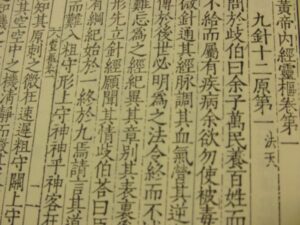 黃帝內經靈樞卷第一
九針十二原第一 法天
問於歧伯曰余子萬民養百姓而
不給而屬有疾病余欲勿使被毒
微針通其經脉調其血氣營其逆
傳於後世必明爲之法令終而不
難忘爲之經紀異其章別其表裏
形先立針經願聞其情歧伯答曰臣
有綱紀始於一終於九焉請言其道
而難入粗守形上守神神乎神客在
知其原刺之微在速遲粗守關上守
其空空中之機清靜而微其